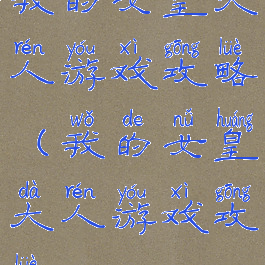 我的女皇大
rén yóu xì gōng lüè
人游戏攻略
wǒ de nǚ huáng
(我的女皇
dà rén yóu xì gōng
大人游戏攻
lüè